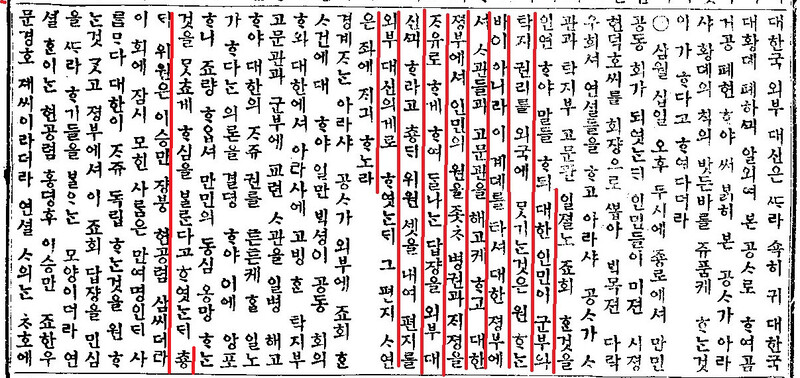 대한국 외부 대신은 ᄯᅡ라 속히 귀 대한국
대황뎨 폐하ᄭᅴ 알외여 본 공ᄉᆞ로 ᄒᆞ여곰
폐현 ᄒᆞ야 써 ᄇᆞᆰ히 본 공ᄉᆞ가 아라
샤 황뎨의 칙의 밧든바를 쥬품케 ᄒᆞᄂᆞᆫ것
이 가 ᄒᆞ다고 ᄒᆞ엿다더라
○ 삼월 십일 오후 두시에 죵로에셔 만민
공동 회가 되엿ᄂᆞᆫᄃᆡ 인민들이 시졍
현덕호씨를 회장으로 ᄲᅩᆸ아 ᄇᆡᆨ목젼 다락
우희셔 연셜들을 ᄒᆞ고 아라샤 공ᄉᆞ가 ᄉᆞ
관과 탁지부 고문관 일졀노 죠회 ᄒᆞᆫ것을
인연 ᄒᆞ야 말들 ᄒᆞ되 대한 인민이 군부와
탁지 권리를 외국에 ᄆᆺ기ᄂᆞᆫ것은 원 ᄒᆞᄂᆞᆫ
바이 아니라 이 계뎨를 타셔 대한 졍부에
셔 ᄉᆞ관들과 고문관을 해고케 ᄒᆞ고 대한
졍부에셔 인민의 원을 좃ᄎᆞ 병권과 ᄌᆡ졍을
ᄌᆞ유로 ᄒᆞ게 ᄒᆞ여 둘나ᄂᆞᆫ 답쟝을 외부 대
신ᄭᅴ ᄒᆞ라고 춍ᄃᆡ 위원 셋을 내여 편지를
외부 대신의게로 ᄒᆞ엿ᄂᆞᆫᄃᆡ 그 편지 ᄉᆞ연
은 좌에 긔ᄌᆡ ᄒᆞ노라
경계쟈ᄂᆞᆫ 아라샤 공ᄉᆞ가 외부에 죠회 ᄒᆞᆫ
ᄉᆞ건에 대 ᄒᆞ야 일만 ᄇᆡᆨ셩이 공동 회의
ᄒᆞ와 대한에셔 아라샤에 고빙 ᄒᆞᆫ 탁지부
고문관과 군부에 교련 ᄉᆞ관을 일병 해고
ᄒᆞ야 대한의 ᄌᆞ쥬 권를 튼튼케 ᄒᆞᆯ 일노
가 ᄒᆞ다ᄂᆞᆫ 의론을 결뎡 ᄒᆞ야 이에 앙포
ᄒᆞ니 죠량 ᄒᆞ옵셔 만민의 동심 옹망 ᄒᆞᄂᆞᆫ
것을 ᄒᆞ심을 ᄇᆞ란다고 ᄒᆞ엿ᄂᆞᆫᄃᆡ 춍
ᄃᆡ 위원은 이승만 쟝붕 현공렴 삼씨더라
이 회에 잠시 모힌 사ᄅᆞᆷ은 만여명인ᄃᆡ 사
ᄅᆞᆷ마다 대한이 ᄌᆞ쥬 독립 ᄒᆞᄂᆞᆫ것을 원 ᄒᆞ
ᄂᆞᆫ것 ᄀᆞᆺ고 졍부에셔 이 죠회 답쟝을 민심
을 ᄯᅡ라 ᄒᆞ기들을 ᄇᆞ라ᄂᆞᆫ 모양이더라 연
셜 ᄒᆞᆫ이ᄂᆞᆫ 현공렴 홍뎡후 이승만 죠한우
문경호 졔씨이더라더라 연셜 ᄉᆞ의ᄂᆞᆫ ᄎᆞ호에